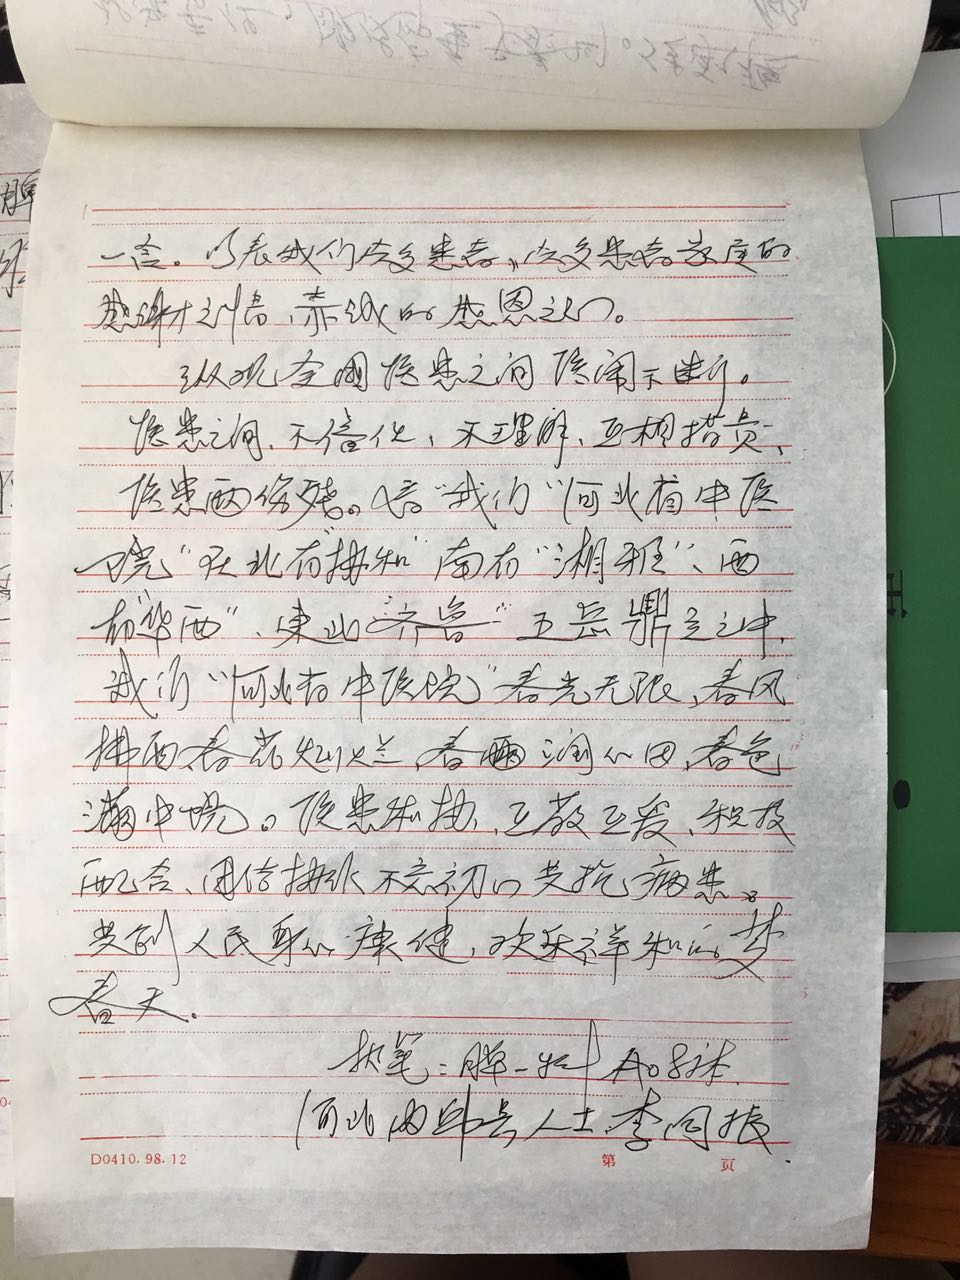 一言。以表我们众多患者,众多患者家庭的
感谢之情、赤诚的感恩之心。
纵观全国医患之间医闹不断。
医患之间、不信任、不理解、互相指责、
医患两伤残。"我们"河北省中医
院"在北有"协和"南有"湘雅"、西
有"华西"、东北"齐鲁"五岳鼎立之中,
我们"河北省中医院"春光无限、春风
拂面、春花灿烂、春雨润心田、春色
满中院。医患和协、互敬互爱、积极
配合、用信 不忘初心共抗病患。
共创人民身心康健,欢乐祥和的梦
春天。
执笔:脾一 A08床.
河北内邱县人士:李同振
D0410.98.12
第 页